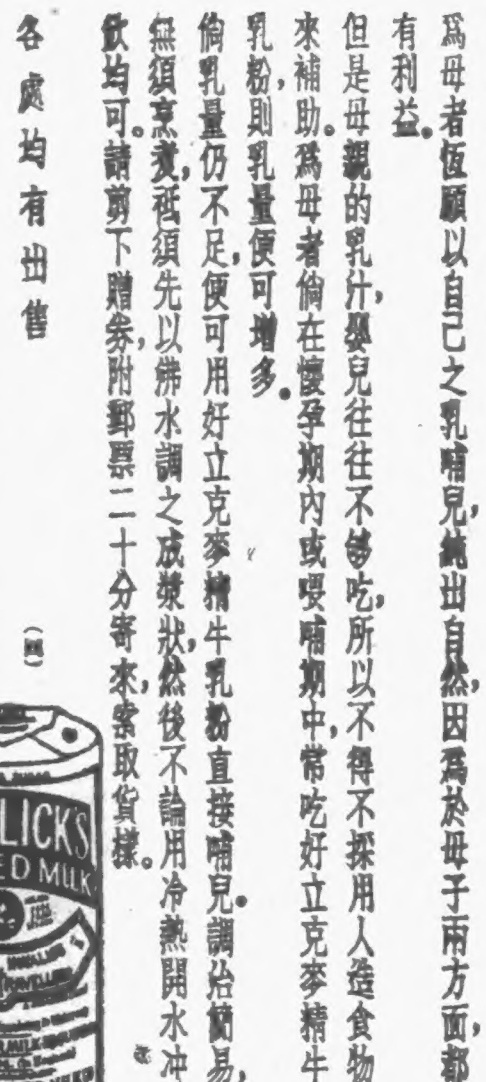 爲母者恆願以自己之乳哺兒，純出自然，因爲於母子兩方面，都
有利益。
但是母親的乳汁，嬰兒往往不够吃，所以不得不採用人造食物
來補助。爲母者倘在懷孕期內或喂哺期中，常吃好立克麥精牛
乳粉，則乳量便可增多。
倘乳量仍不足，便可用好立克麥精牛乳粉直接哺兒。調治簡易，
無須烹煮，祗須先以沸水調之成漿狀，然後不論用冷熱開水冲
飲均可。請剪下贈券，附郵票二十分寄來，索取貨樣。
各處均有出售
LICKS
ED MILK